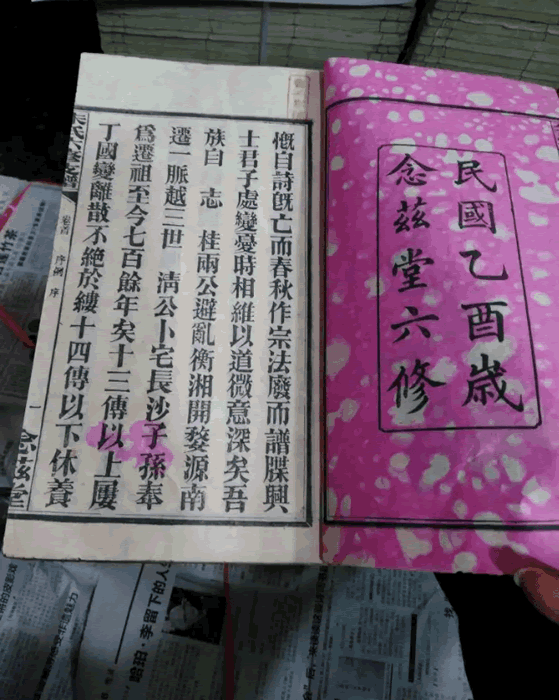 民國乙酉歲
念茲堂六修
慨自詩旣亡而春秋作宗法廢而譜牒興
士君子處變憂時相維以道微意深矣吾
族自 志 桂兩公避亂衡湘開婺源南
遷一脈越三世 淸公卜宅長沙子孫奉
爲遷祖至今七百餘年矣十三傳以上屢
丁國變離散不絶於縷十四傳以下休養
朱氏六修支譜
卷首 序例 序
一
念茲堂
哈珀·李留下的人